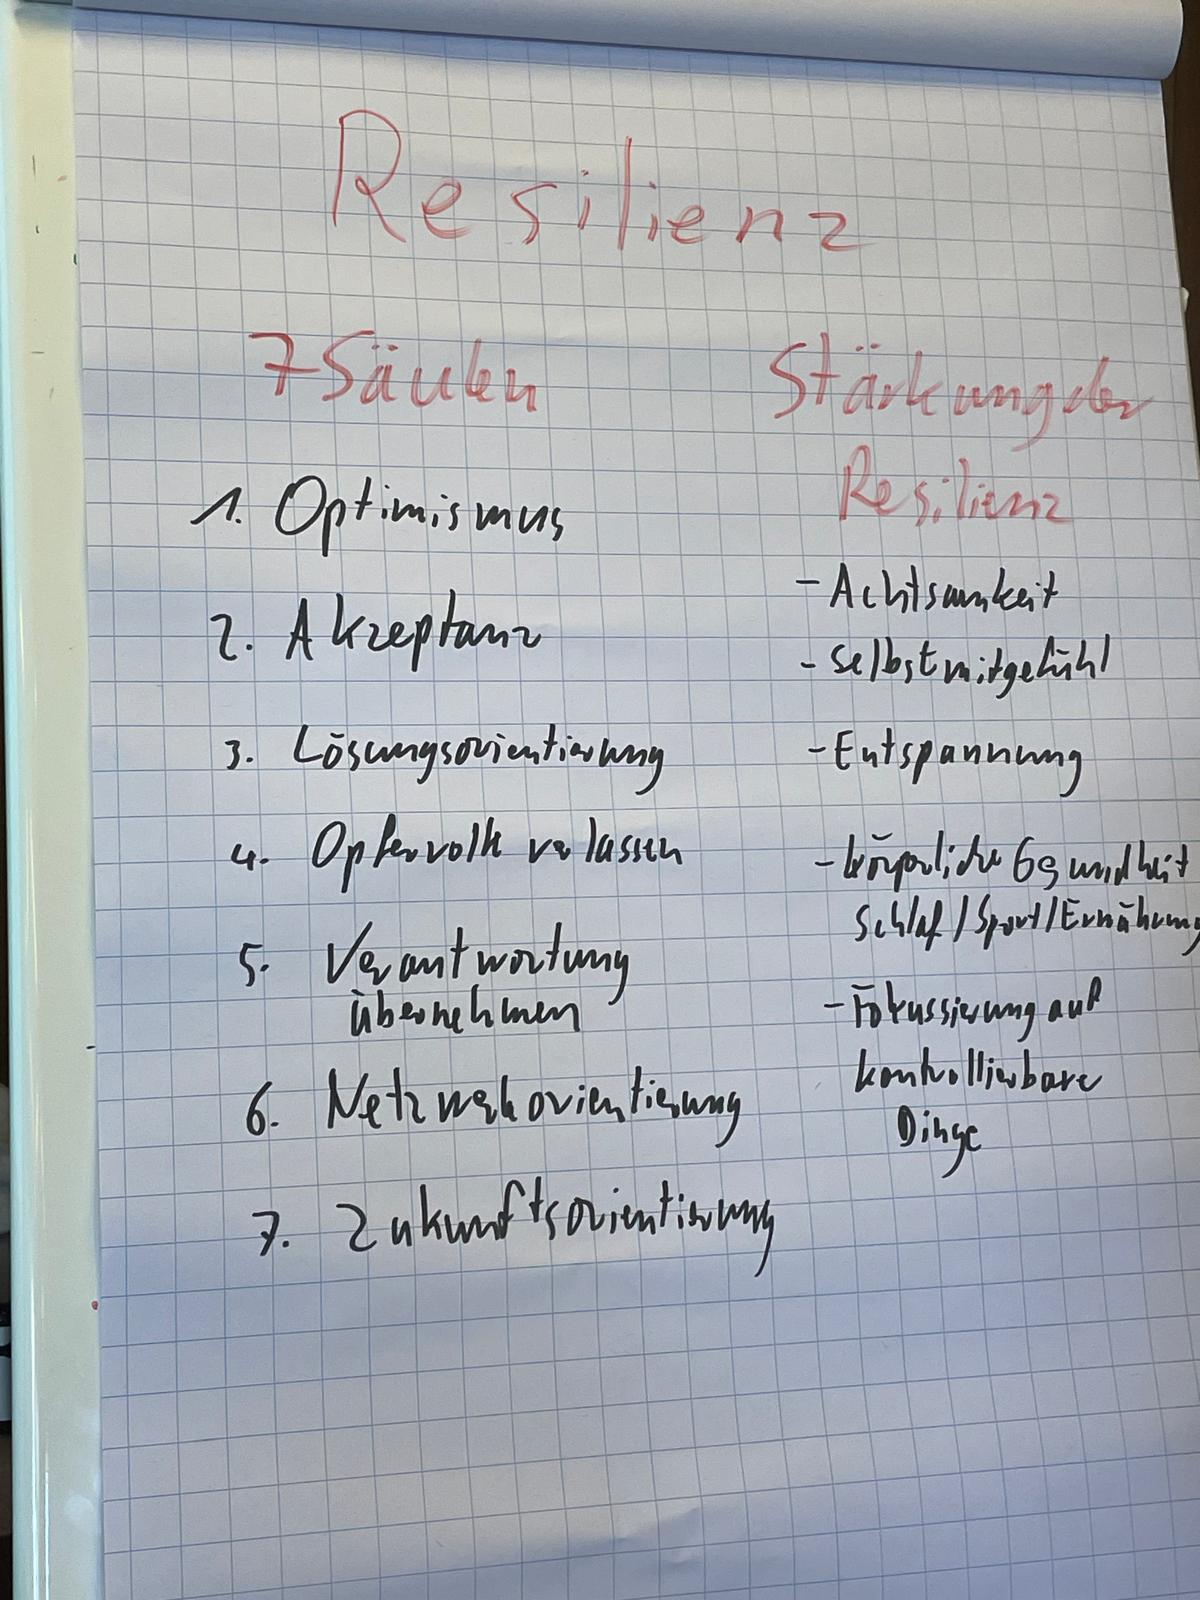 Resilienz
7 Säulen
1. Optimismus
2. Akzeptanz
3. Lösungsorientierung
4. Opferrolle verlassen
5. Verantwortung
übernehmen
6. Netzwerkorientierung
7. Zukunftsorientierung
Stärkung der
Resilienz
- Achtsamkeit
- Selbstmitgefühl
- Entspannung
- körperliche Gesundheit
Schlaf/Sport/Ernährung
- Fokussierung auf
kontrollierbare
Dinge